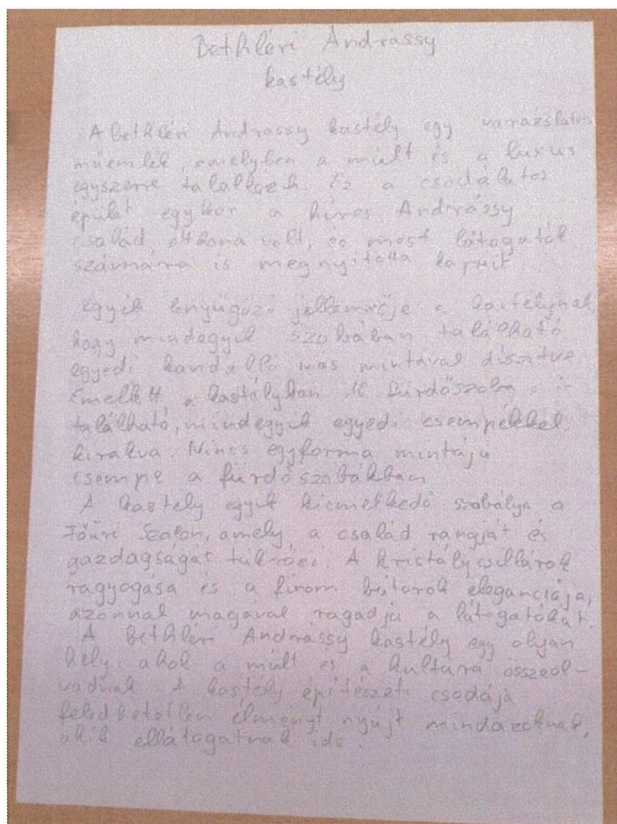 Bethléri Andrássy
kastély
A Bethléri Andrássy kastély egy varázslatos
műemlék, amelyben a múlt és a luxus
egyszerre találkozik. Ez a csodálatos
épület egykor a híres Andrássy
család otthona volt, és most látogatók
számára is megnyitotta kapuit.
Egyik lenyűgöző jellemzője a kastélynak,
hogy mindegyik szobában található
egyedi kandalló más mintával díszítve
Emellett a kastélyban 16 fürdőszoba is
található, mindegyik egyedi csempékkel
kirakva. Nincs egyforma mintájú
csempe a fürdőszobákban
A kastély egyik kiemelkedő szobálya a
Főúri Szalon, amely, a család rangját és
gazdagságát tükrözi. A kristálycsillárok
ragyogása és a finom bútorok eleganciája,
azonnal magával ragadja a látogatókat.
A Bethléri Andrássy kastély egy olyan
hely, ahol a múlt és a kultúra összeol-
vadnak A kastély építészeti csodája
feledhetetlen élményt nyújt mindazoknak,
akik ellátogatnak ide.